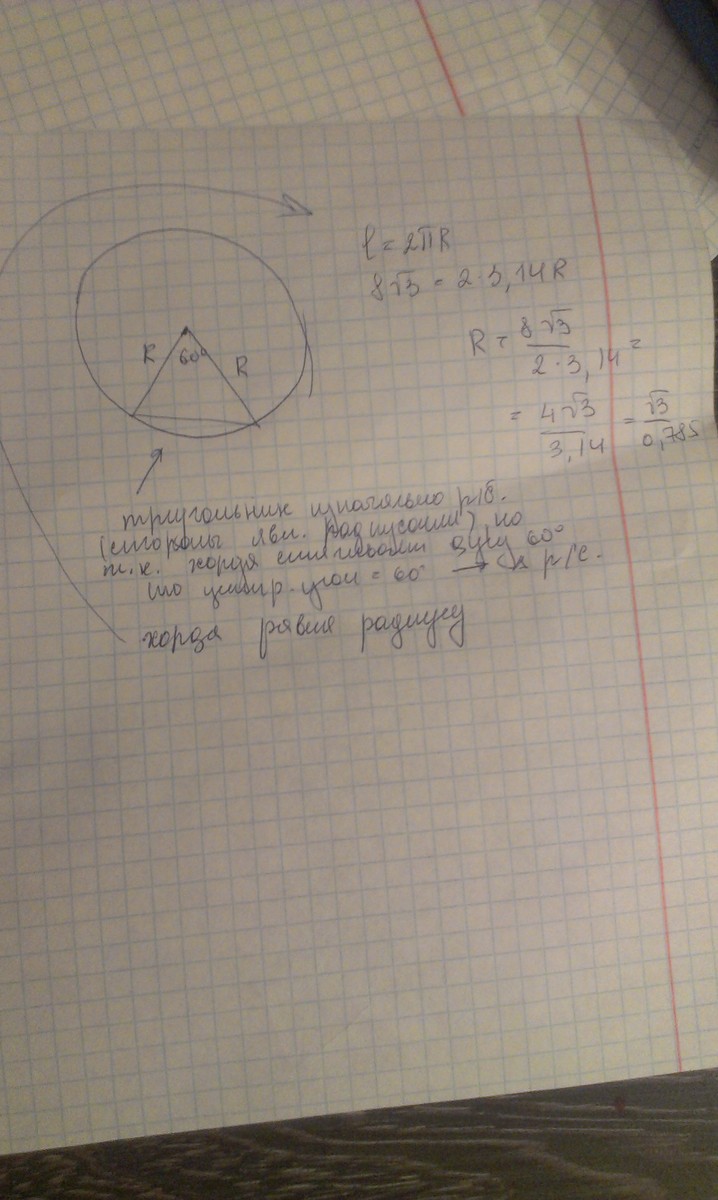 R
60°
R
l = 2πR
8√3 = 2·3,14R
R = 8√3 / 2·3,14 =
= 4√3 / 3,14 = √3 / 0,785
треугольник изначально р/б.
(стороны явл. радиусами) но
т.к. хорда стягивает дугу 60°
то центр. угол = 60° → р/с.
хорда равна радиусу